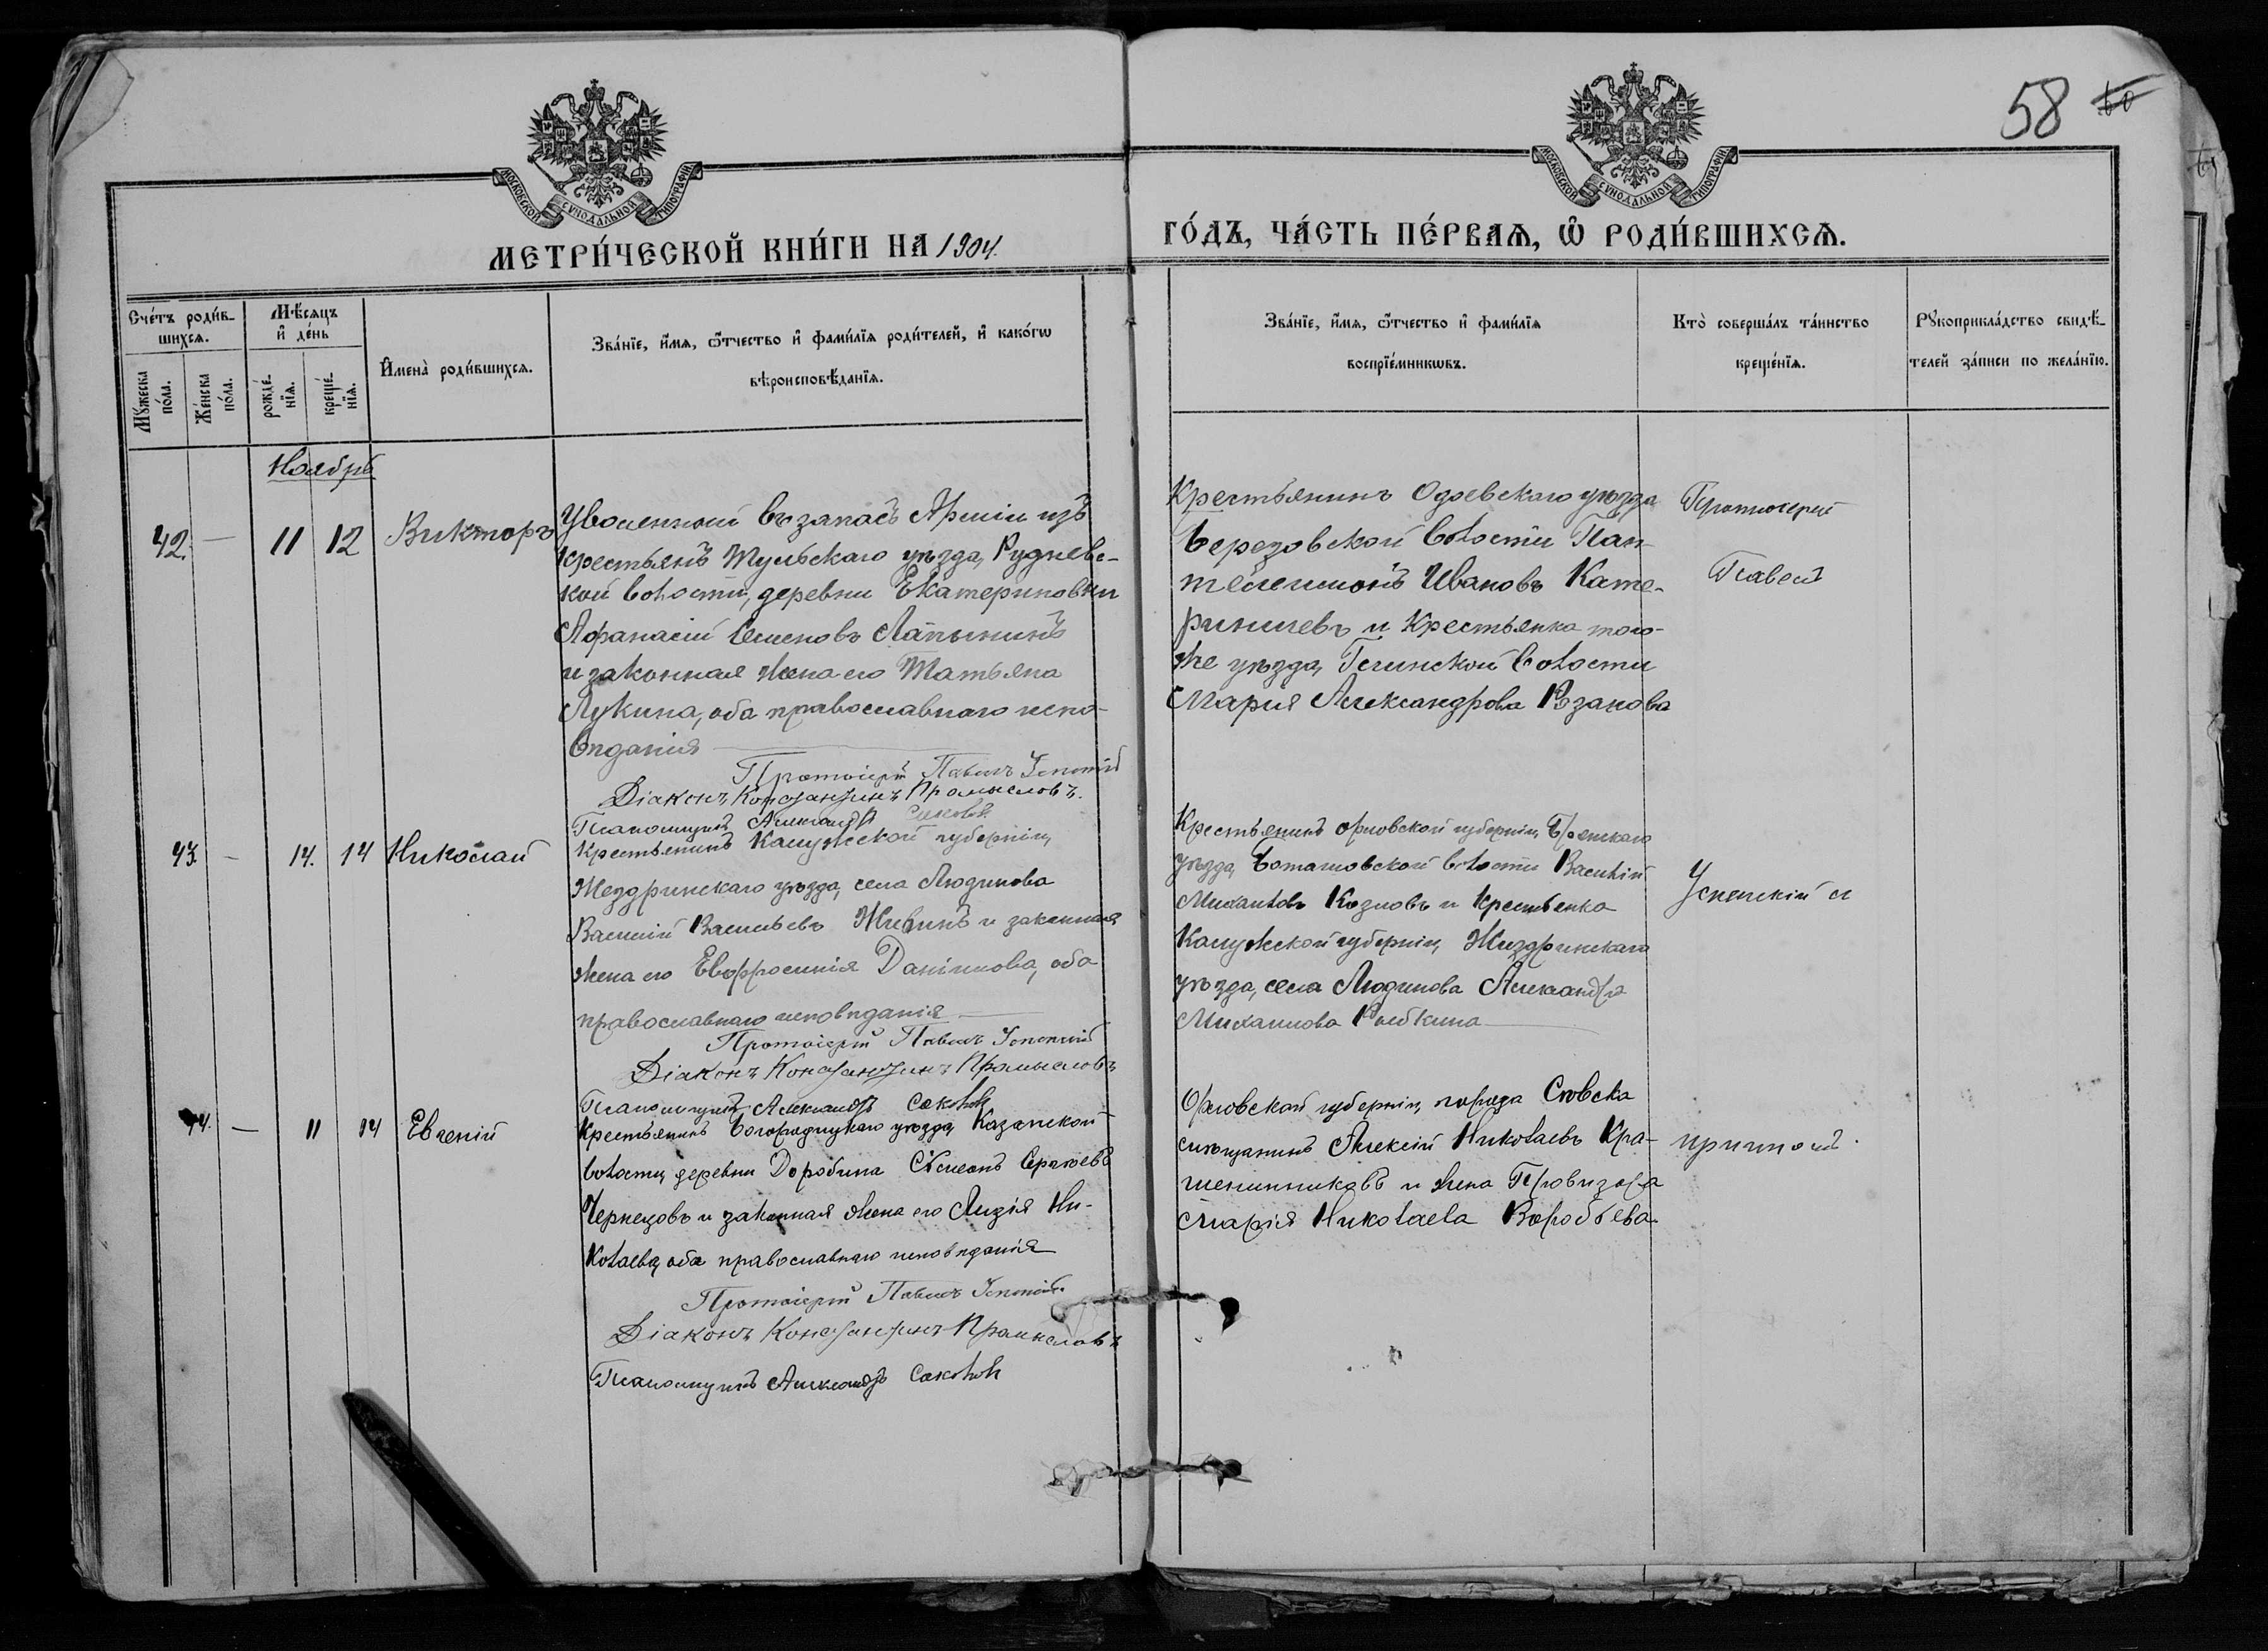 58 60
МОСКОВСКОЙ СѴНОДАЛЬНОЙ ТИПОГРАФІИ.
МОСКОВСКОЙ СѴНОДАЛЬНОЙ ТИПОГРАФІИ.
МЕТРИ́ЧЕСКОЙ КНИ́ГИ НА 1904.
ГО́ДЪ, ЧА́СТЬ ПЕ́РВАѦ, Ѡ҆ РОДИ́ВШИХСѦ.
Сче́тъ роди́в-
шихсѧ.
Мѣ́сѧцъ
и҆ де́нь
Мꙋ́жеска
по́ла.
Же́нска
по́ла.
рожде́-
нїѧ.
креще́-
нїѧ.
И҆мена̀ роди́вшихсѧ.
Зва́нїе, и҆́мѧ, ѻ҆́тчество и҆ фами́лїѧ роди́телей, и҆ како́гѡ
вѣроисповѣ́данїѧ.
Зва́нїе, и҆́мѧ, ѻ҆́тчество и҆ фами́лїѧ
воспрїе́мникѡвъ.
Кто̀ соверша́лъ та́инство
креще́нїѧ.
Рꙋкоприкла́дство свидѣ́-
телей за́писи по жела́нїю.
Ноябрь
42. — 11 12 Викторъ
Уволенный въ запасъ Арміи изъ
крестьянъ Тульскаго уѣзда, Рудневс-
кой волости, деревни Екатериновки
Афанасій Семеновъ Лапынинъ
и законная жена его Татьяна
Лукина, оба православнаго испо-
вѣданія
Протоіерей Павелъ Успенскій
Діаконъ Константинъ Промысловъ.
Псаломщикъ Александръ Соколовъ
Крестьянинъ Одоевскаго уѣзда
Березовской волости Пан-
телеимонъ Ивановъ Кате-
риничевъ и крестьянка того-
же уѣзда, волости
Марія Александрова
Протоіерей
Павелъ
43. — 14. 14 Николай
Крестьянинъ Калужской губерніи,
Жездринскаго уѣзда, села Людинова
Василій Васильевъ Живинъ и законная
жена его Евфросинія Даніилова, оба
православнаго исповѣданія
Протоіерей Павелъ Успенскій
Діаконъ Константинъ Промысловъ
Псаломщикъ Александръ Соколовъ
Крестьянинъ Орловской губерніи, Брянскаго
уѣзда, волости Василій
Михаиловъ Козловъ и крестьянка
Калужской губерніи, Жиздринскаго
уѣзда, села Людинова Александра
Михаилова
Успенскій съ
44. — 11 14 Евгеній
Крестьянинъ Богородицкаго уѣзда, Казанской
волости, деревни Доробина Сѵмеонъ Сергѣевъ
Чернецовъ и законная жена его Лидія Ни-
колаева, оба православнаго исповѣданія
Протоіерей Павелъ Успенскій.
Діаконъ Константинъ Промысловъ
Псаломщикъ Александръ Соколовъ
Орловской губерніи, города Сѣвска
мѣщанинъ Алексій Николаевъ Кра-
шенинниковъ и жена Провизора
Марія Николаева Воробьева
причтомъ.